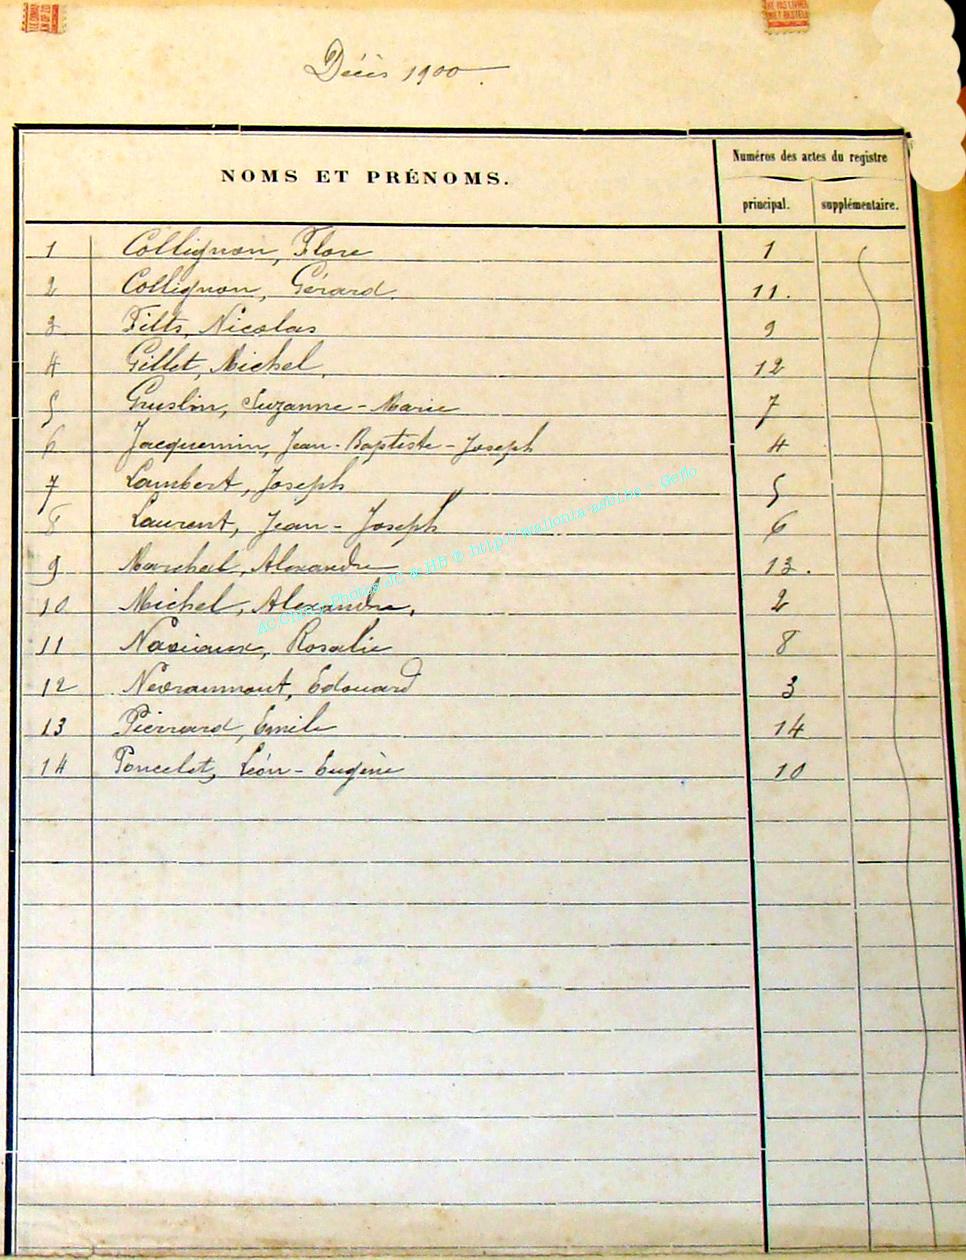 Décès 1900.
NOMS ET PRÉNOMS.
Numéros des actes du registre
principal.
supplémentaire.
1 Collignon, Flore 1
2 Collignon, Gérard. 11.
3 Filts, Nicolas 9
4 Gillet, Michel. 12
5 Suzanne-Marie 7
6 Jacquemin, Jean-Baptiste-Joseph 4
7 Lambert, Joseph 5
8 Laurent, Jean-Joseph 6
9 Maréchal, Alexandre 13.
10 Michel, Alexandre, 2
11 Rosalie 8
12 Nevraumont, Edouard 3
13 Pierrard, Emile 14
14 Poncelet, Léon-Eugène 10